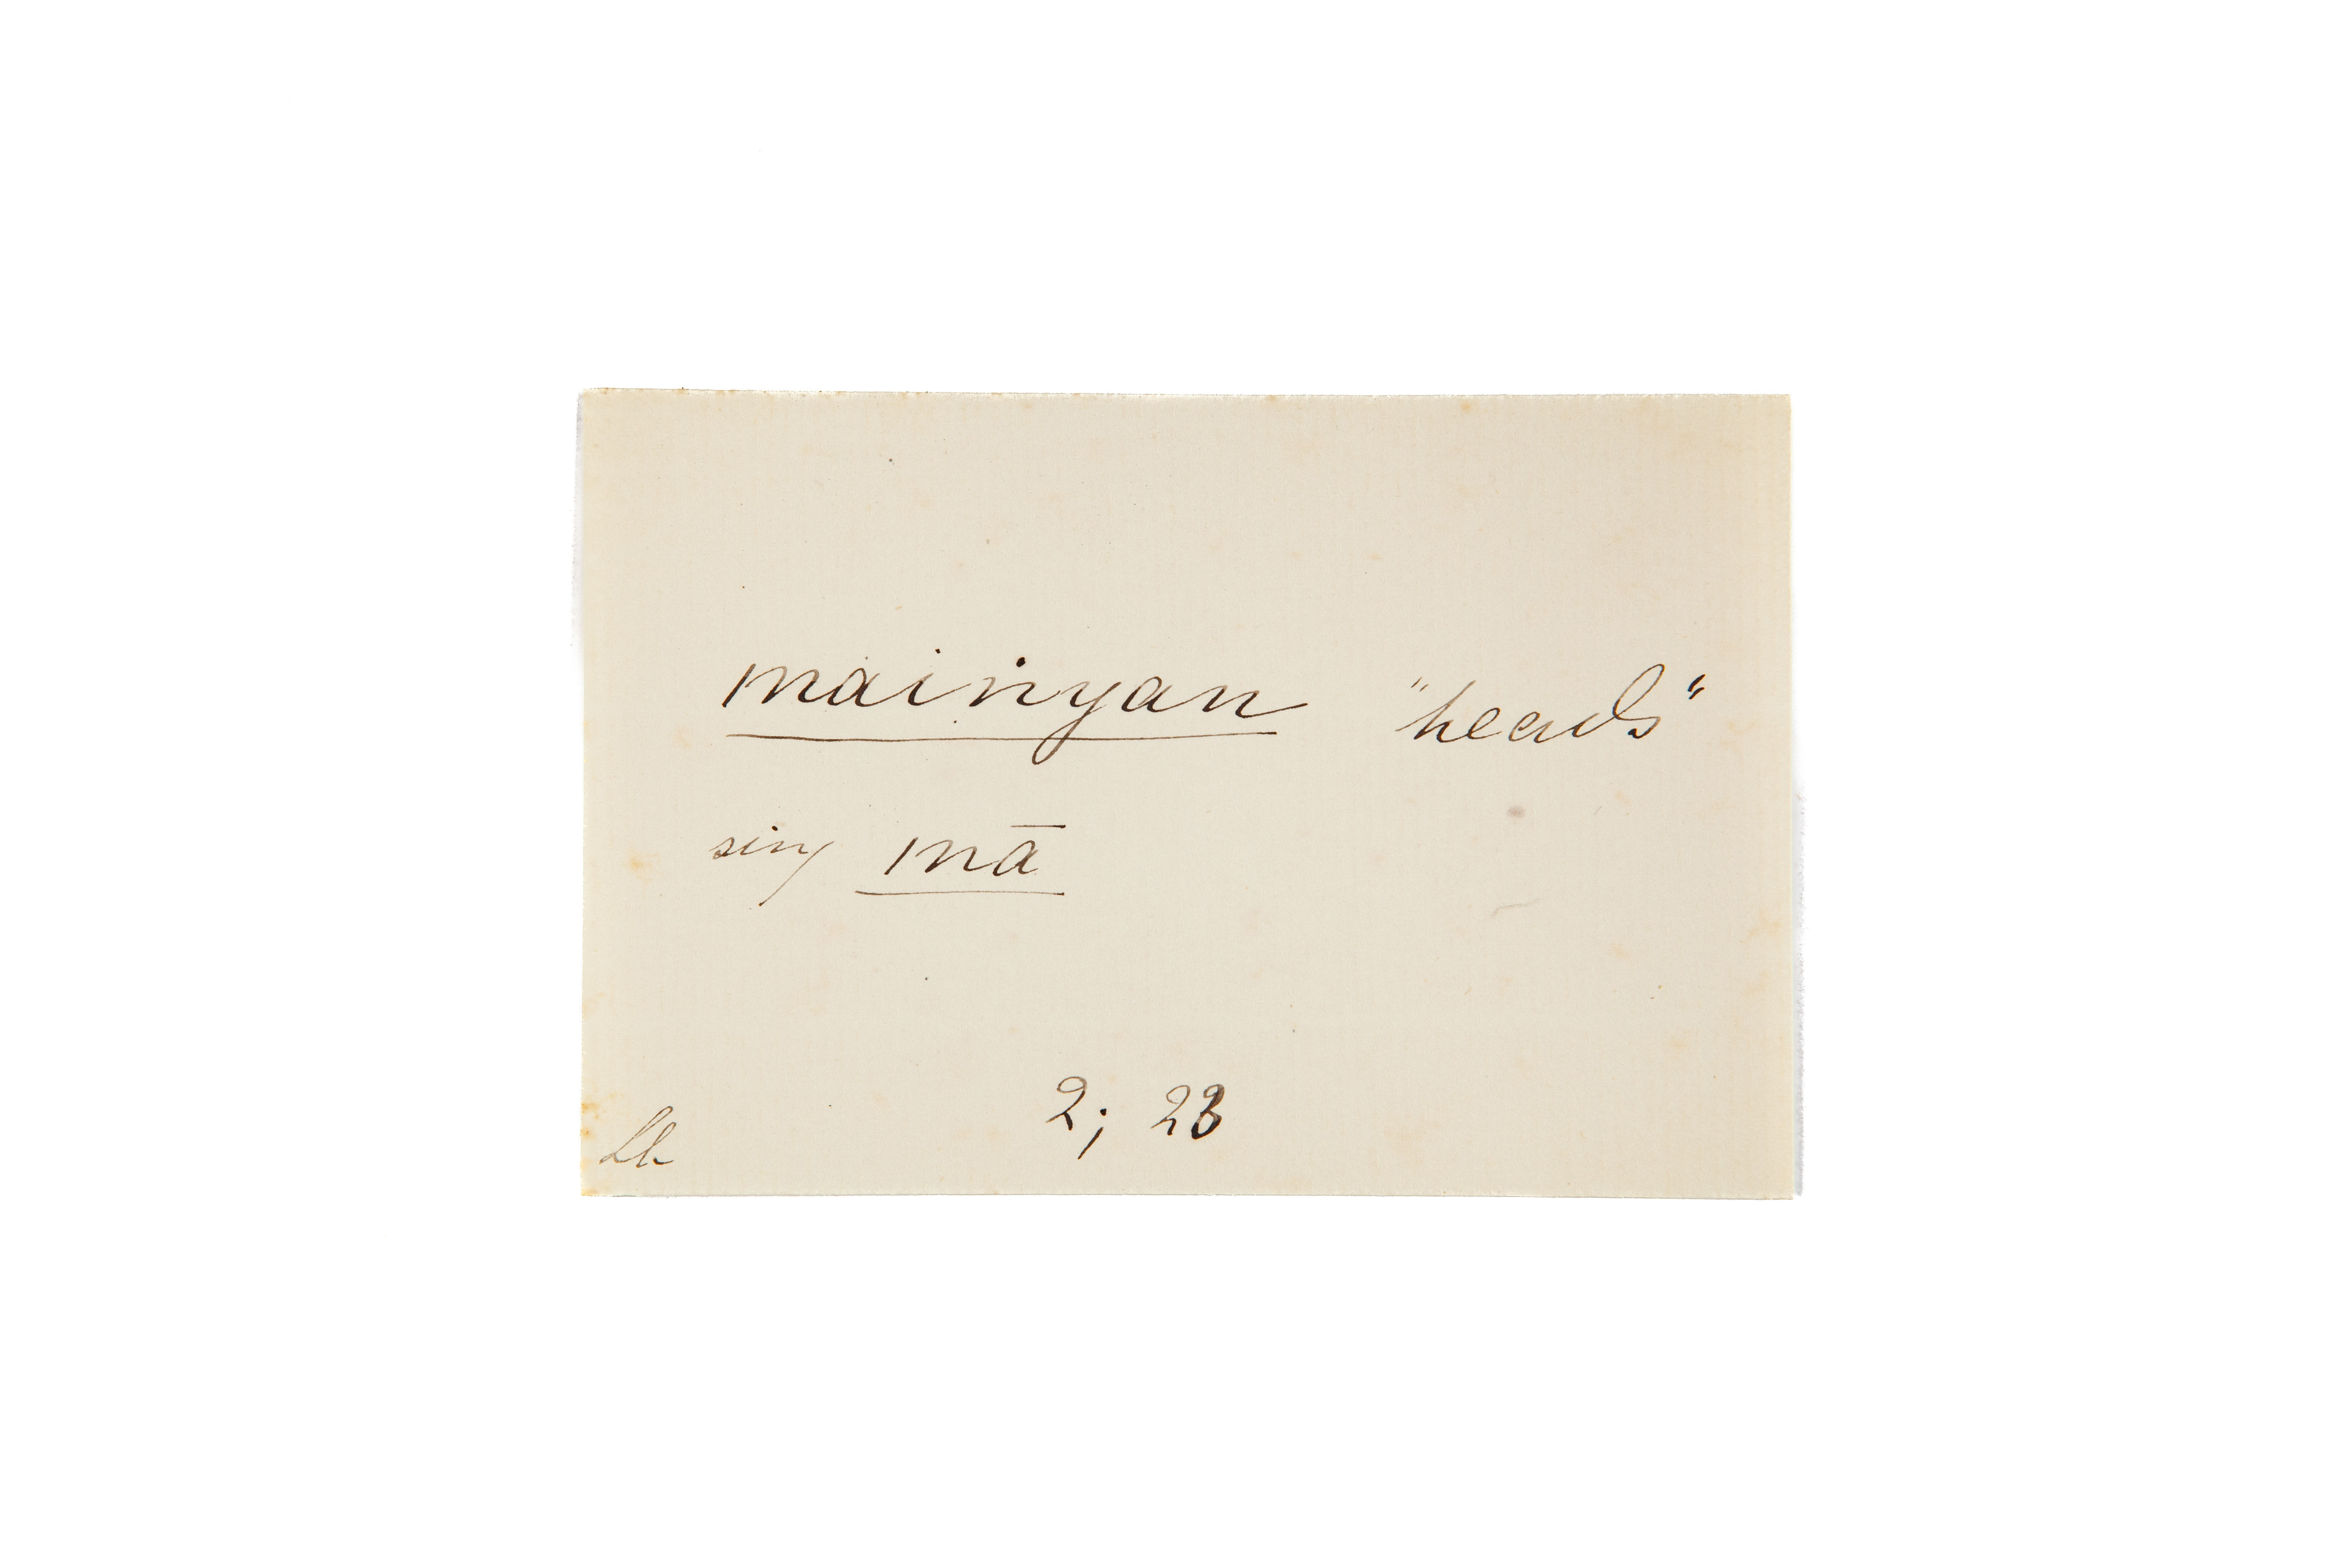 maiṅyan "heads"
sing mā
2; 23